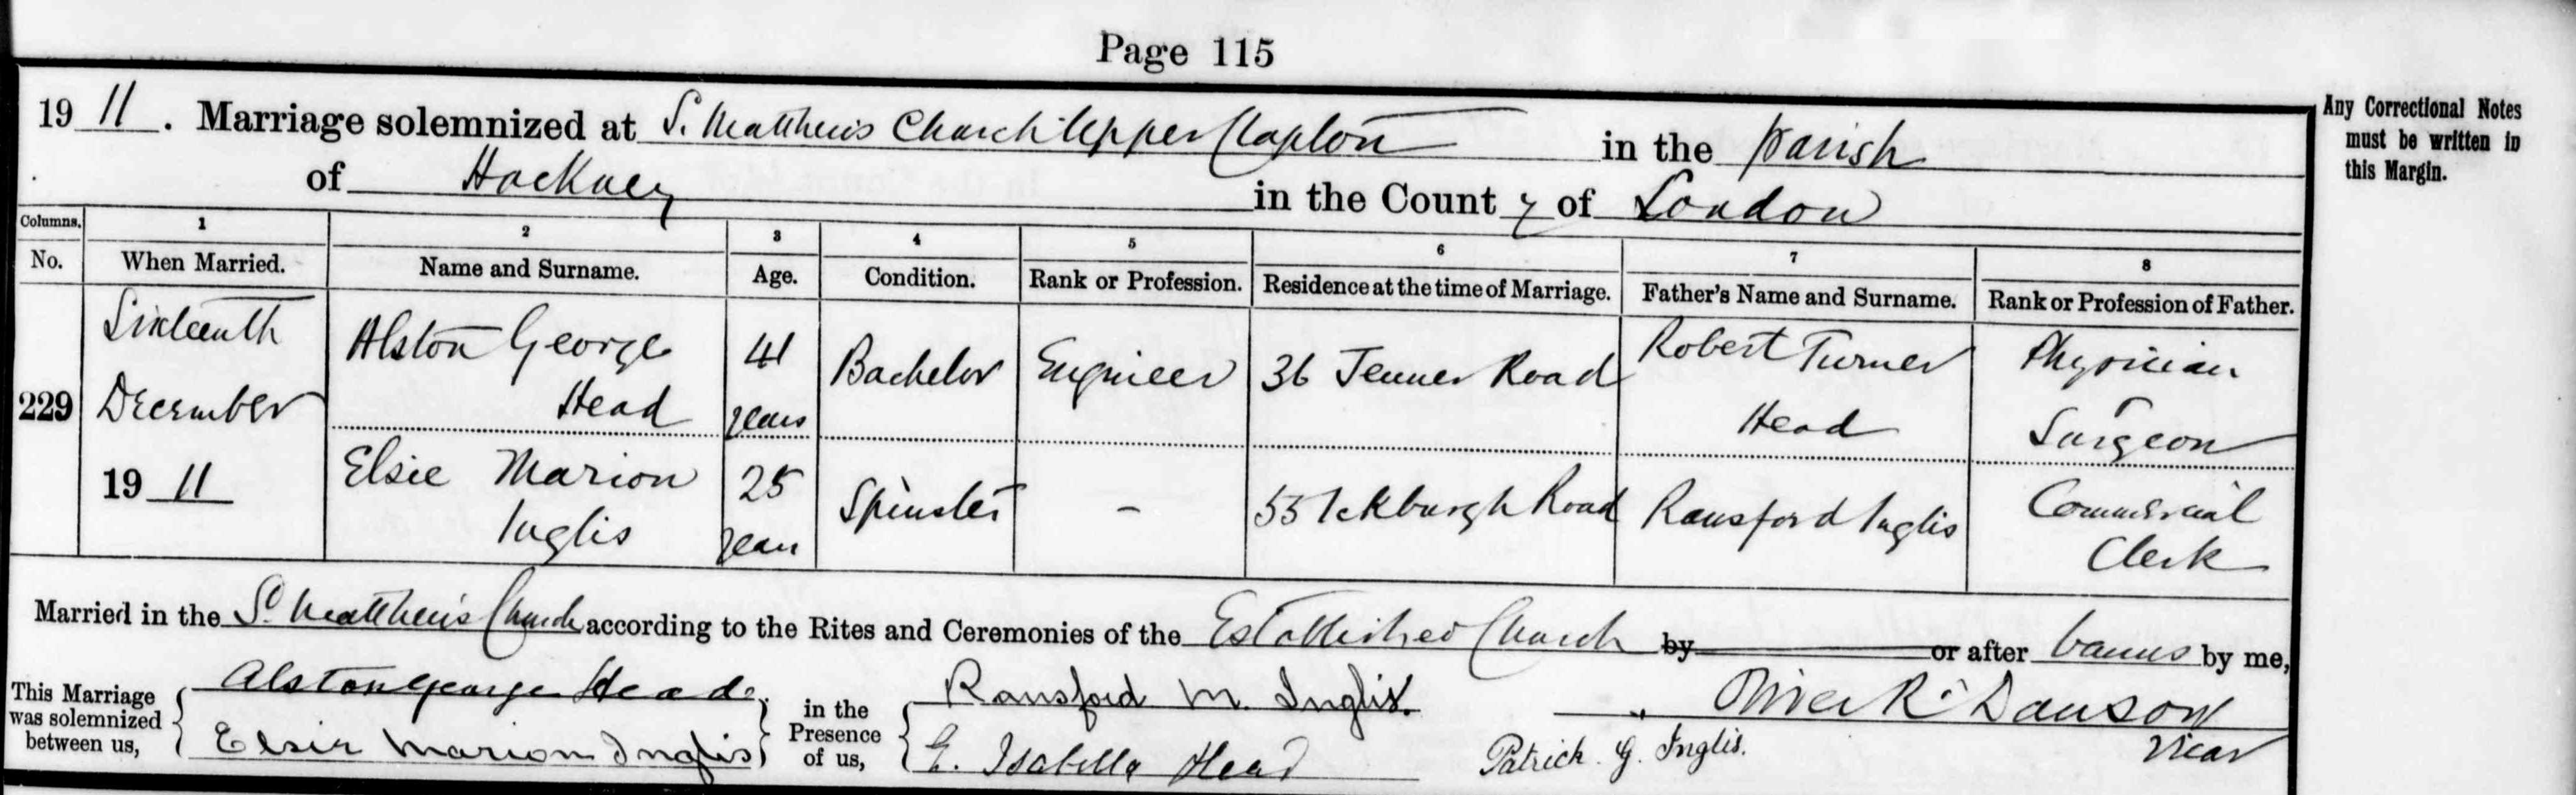 Page 115
1911. Marriage solemnized at S. Matthew's Church Upper Clapton in the Parish
of Hackney in the County of London
Any Correctional Notes
must be written in
this Margin.
Columns. 1 2 3 4 5 6 7 8
No. When Married. Name and Surname. Age. Condition. Rank or Profession. Residence at the time of Marriage. Father's Name and Surname. Rank or Profession of Father.
229
Sixteenth
December
1911
Alston George
Head
41
years
Bachelor
Engineer
36 Jenner Road
Robert Turner
Head
Physician
Surgeon
Elsie Marion
Inglis
25
years
Spinster
-
55 Ickburgh Road
Ransford Inglis
Commercial
Clerk
Married in the St Matthew's Church according to the Rites and Ceremonies of the Established Church by or after banns by me,
This Marriage
was solemnized
between us,
Alston George Head.
Elsie Marion Inglis
in the
Presence
of us,
Ransford M. Inglis.
E. Isabella Head
Patrick. G. Inglis.
Dawson
Vicar